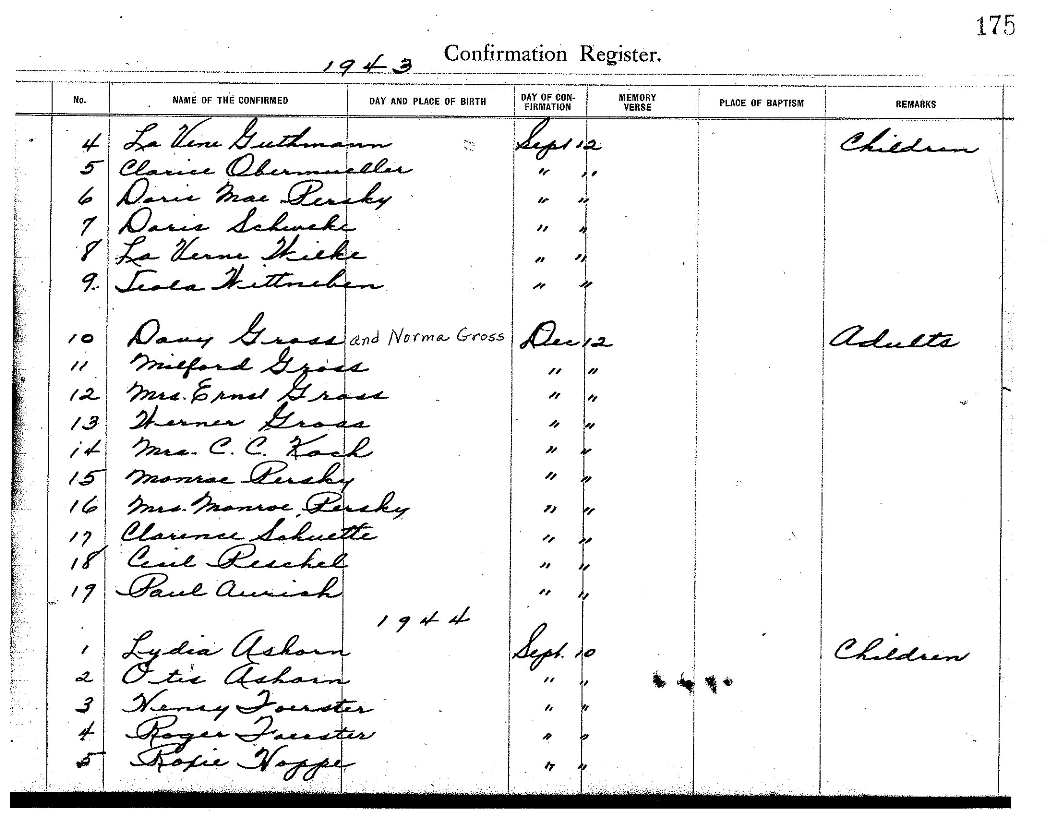 175
Confirmation Register.
1943
No. NAME OF THE CONFIRMED DAY AND PLACE OF BIRTH DAY OF CON-FIRMATION MEMORY VERSE PLACE OF BAPTISM REMARKS
4 La Vern Guthmann Sept 12 Children
5 Clarice Obermueller " "
6 Doris Mae Persky " "
7 Doris Schweke " "
8 La Verne Wilke " "
9. Leola Wittneben " "
10 Davy Gross and Norma Gross Dec 12 Adults
11 Milford Gross " "
12 Mrs. Ernst Gross " "
13 Werner Gross " "
14 Mrs. C. C. Koch " "
15 Monroe Persky " "
16 Mrs. Monroe Persky " "
17 Clarence Schuette " "
18 Cecil Peschel " "
19 Paul Aurich " "
1944
1 Lydia Ashorn Sept. 10 Children
2 Otis Ashorn " "
3 Henry Foerster " "
4 Roger Foerster " "
5 Roxie Hoppe " "